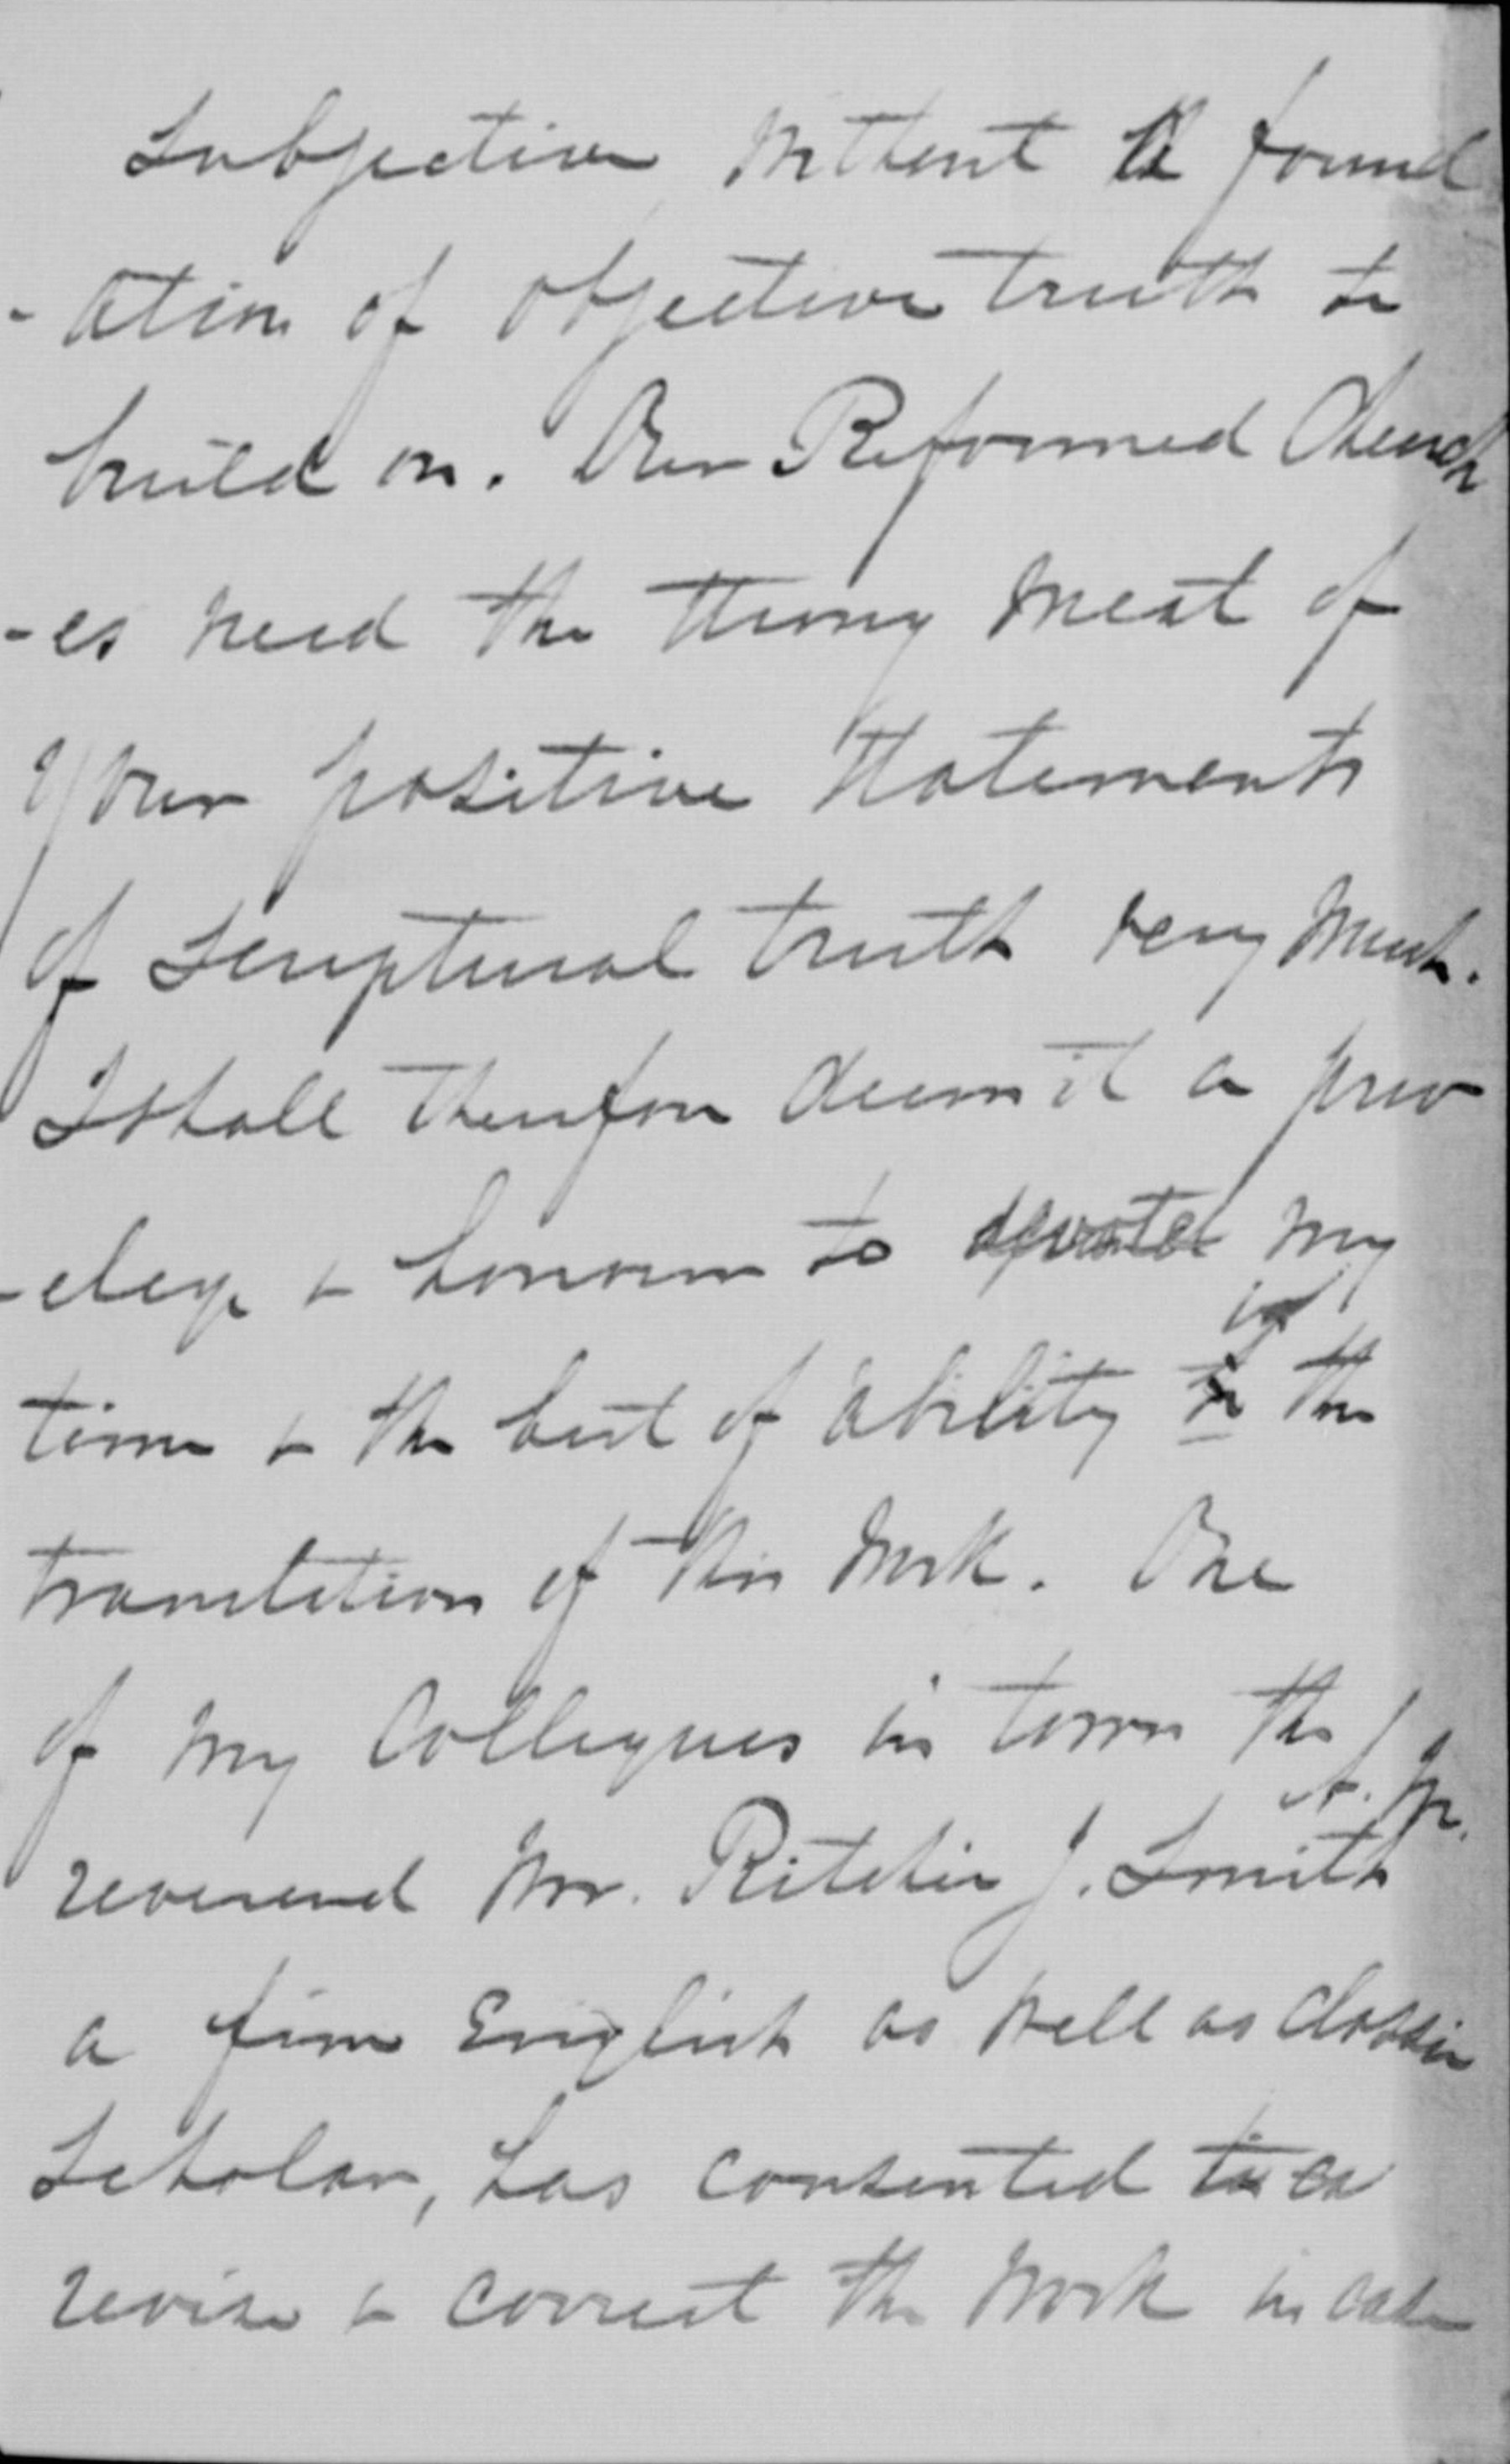 subjective without a found
-ation of objective truth to
build on. Our Reformed Church
-es need the strong meat of
your positive statements
of scriptural truth very much.
I shall therefore deem it a priv
-elege & honour to devote my
time & the best of ability in the
translation of this work. One
of my Collegues in town the
reverend Mr. Ritchie J. Smith
a fine English as well as classic
scholar, has consented to
revise & correct the work in case